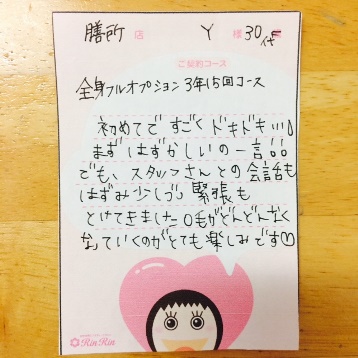 膳所 店 Y 様 30代
ご契約コース
全身フルオプション3年15回コース
初めてですごくドキドキ!!!
まずはずかしいの一言!!
でも、スタッフさんとの会話も
はずみ少しづつ緊張も
とけてきました。毛がどんどんなく
なっていくのがとても楽しみです♡
RinRin